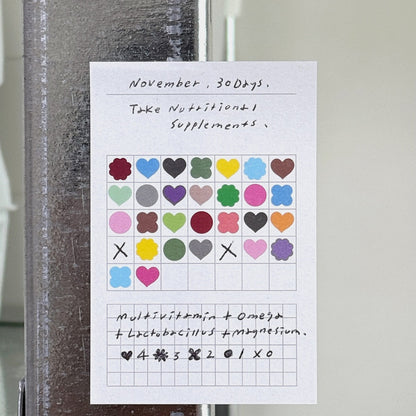 November, 30 Days.
Take Nutritional
Supplements.
Multivitamin + Omega
+ Lactobacillus + Magnesium.
♥ 4 ✽ 3 ✖ 2 ● 1 X 0